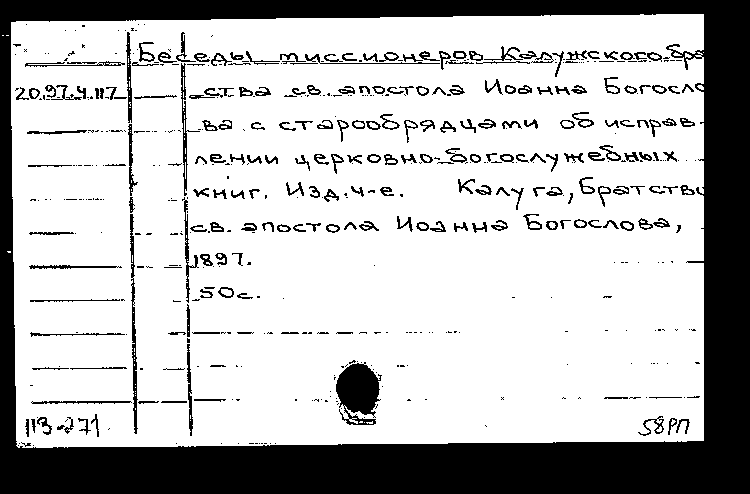 Беседы миссионеров Калужского бра
20.97.4.117 ства св. апостола Иоанна Богосло
ва с старообрядцами об исправ-
лении церковно-богослужебных
книг. Изд. 4-е. Калуга, Братство
св. апостола Иоанна Богослова,
1897.
50с.
113-271 58РП